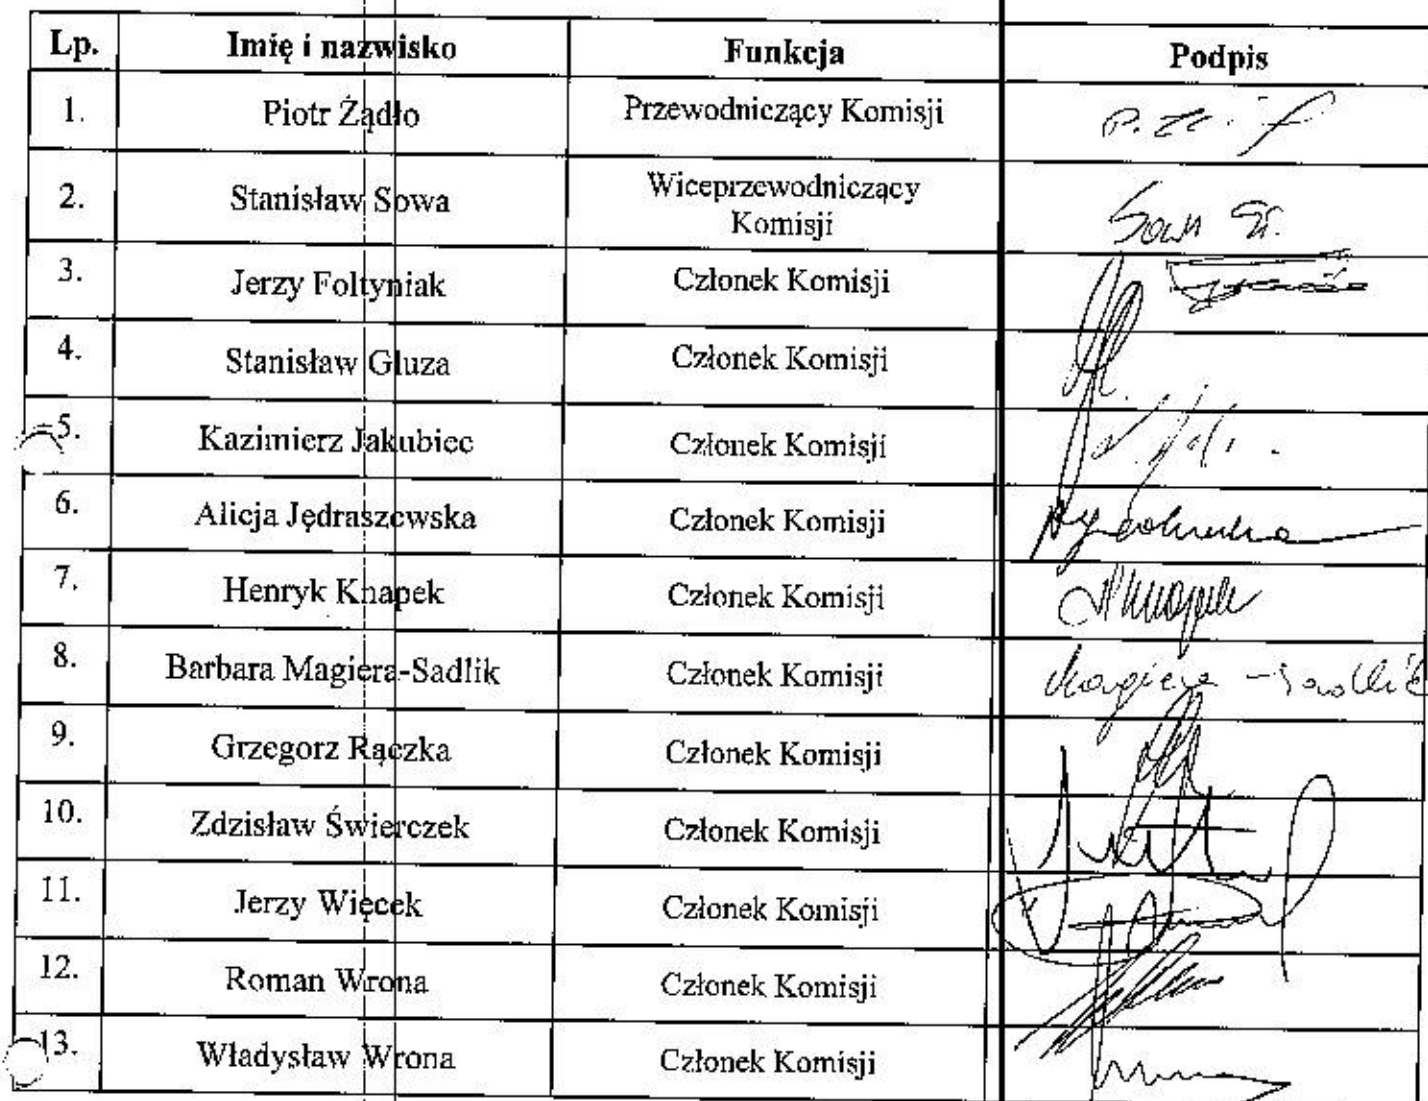 Lp. Imię i nazwisko Funkcja Podpis
1. Piotr Żądło Przewodniczący Komisji
2. Stanisław Sowa Wiceprzewodniczący
Komisji Sowa St.
3. Jerzy Foltyniak Członek Komisji
4. Stanisław Gluza Członek Komisji
5. Kazimierz Jakubiec Członek Komisji
6. Alicja Jędraszewska Członek Komisji
7. Henryk Knapek Członek Komisji
8. Barbara Magiera-Sadlik Członek Komisji Magiera-Sadlik
9. Grzegorz Rączka Członek Komisji
10. Zdzisław Świerczek Członek Komisji
11. Jerzy Więcek Członek Komisji
12. Roman Wrona Członek Komisji
13. Władysław Wrona Członek Komisji